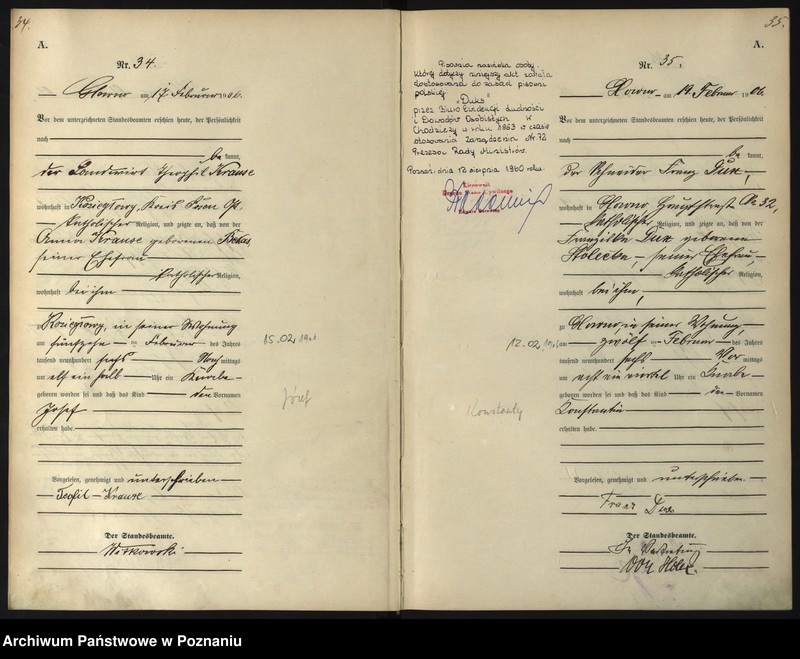 34.
A.
Nr. 34.
am 17 Februar 1906.
Vor dem unterzeichneten Standesbeamten erschien heute, der Persönlichkeit
nach
be kannt,
der Landwirt Theophil Krause
wohnhaft in Koziegłowy, Kreis
katholischer Religion, und zeigte an, daß von der
Anna Krause geborenen
seiner Ehefrau
katholischer Religion,
wohnhaft bei ihm
zu Koziegłowy, in seiner Wohnung
am fünfzehn ten Februar des Jahres
tausend neunhundert sechs Nach mittags
um elf ein halb Uhr ein Knabe
geboren worden sei und daß das Kind den Vornamen
Josef
erhalten habe.
Vorgelesen, genehmigt und unterschrieben
Teofil Krause
Der Standesbeamte.
Witkowski
15.02.1906
Józef
35.
A.
Pisownia nazwiska osoby,
której dotyczy niniejszy akt została
dostosowana do zasad pisowni
polskiej
"Duks"
przez Biuro Ewidencji Ludności
i Dowodów Osobistych w
Chodzieży w roku 1953 w czasie
stosowania zarządzenia Nr. 72
Prezesa Rady Ministrów.
Poznań, dnia 12 sierpnia 1960 roku.
Kierownik
Urzędu Stanu Cywilnego
Nr. 35.
am 14 Februar 1906
Vor dem unterzeichneten Standesbeamten erschien heute, der Persönlichkeit
nach
be kannt,
der Schneider Franz Dux,
wohnhaft in Hauptstraße No 32,
katholischer Religion, und zeigte an, daß von der
Franziska Dux geborenen
seiner Ehefrau,
katholischer Religion,
wohnhaft bei ihm,
zu in seiner Wohnung,
am zwölf ten Februar des Jahres
tausend neunhundert sechs Vor mittags
um acht ein viertel Uhr ein Knabe
geboren worden sei und daß das Kind den Vornamen
Konstantin
erhalten habe.
Vorgelesen, genehmigt und unterschrieben
Franz Dux
Der Standesbeamte.
In Vertretung
12.02.1906
Konstanty
Archiwum Państwowe w Poznaniu